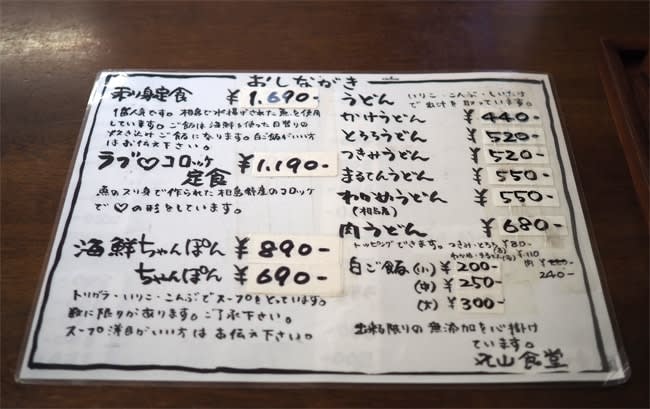 おしながき
刺身定食 ¥1.690-
1人前です。相島で水揚げされた魚を使用
しています。ご飯は海鮮を使った日替りの
炊き込みご飯になります。白ご飯がいい方
はお伝え下さい。
ラブ♡コロッケ
定食 ¥1.190-
魚のスリ身で作られた相島特産のコロッケ
で♡の形をしています。
海鮮ちゃんぽん ¥890-
ちゃんぽん ¥690-
トリガラ・いりこ・こんぶでスープをとっています。
数に限りがあります。ご了承下さい。
スープ薄目がいい方はお伝え下さい。
うどん いりこ・こんぶ・しいたけ
で出汁を取っています。
かけうどん ¥440-
とろろうどん ¥520-
つきみうどん ¥520-
まるてんうどん ¥550-
わかめうどん ¥550-
(相島産)
肉うどん ¥680-
トッピングできます。つきみ・とろろ ¥80-
わかめ・まるてん ¥110
肉
240-
白ご飯 (小) ¥200-
(中) ¥250-
(大) ¥300-
出来る限りの無添加を心掛け
ています。
丸山食堂